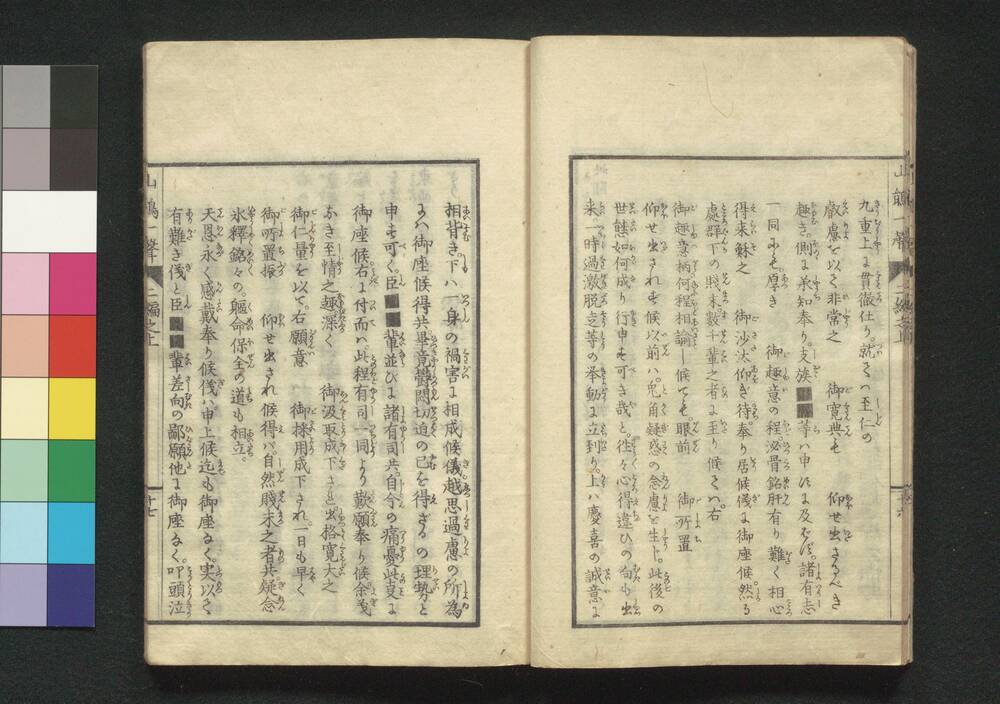 九重上に貫徹仕り。就ては至仁の
叡慮を以て非常之　御寛典も　仰せ出さるべき
趣き。側に承知奉り。支族■■等ハ申すに及ばず。諸有志
一同にも。厚き　御趣意の程。泌骨銘肝有り難く相心
得来穌之　御沙汰仰ぎ待。奉り居候儀に御座候然る
處群下の賤末数十輩之者に至り候ては。右
御趣意柄何程相諭し候ても。眼前　御所置
仰せ出されず候以前ハ。兎角疑惑の念慮を生ト。此後の
世態如何成り行申す可き哉と。徃々心得違ひの向も出
来。一時過激脱走等の挙動に立到り。上ハ慶喜の誠意に
十六
相背き。下ハ一身の禍害に相成候儀。越思過慮の所為
にハ御座候得共畢竟欝悶切迫の已を得ざるの理勢と
申す可く。臣■■輩並びに諸有司共。自今の痛憂此支に
御座候右に付而ハ。此程有司一同より歎願奉り候余
なき至情之趣深く　御汲取成下され出格寛大之
御仁量を以て。右願意　御採用成下され。一日も早く
御所置振　仰せ出され候得バ。自然賤末之者共。疑念
氷釋銘々の。軀命保全の道も相立。
天恩永く感戴奉り候儀ハ申上候迄も御座なく。実以て
有難き儀と臣■■輩差向の鄙願他に御座なく。叩頭泣
山鵑一聲　二編之上　十七